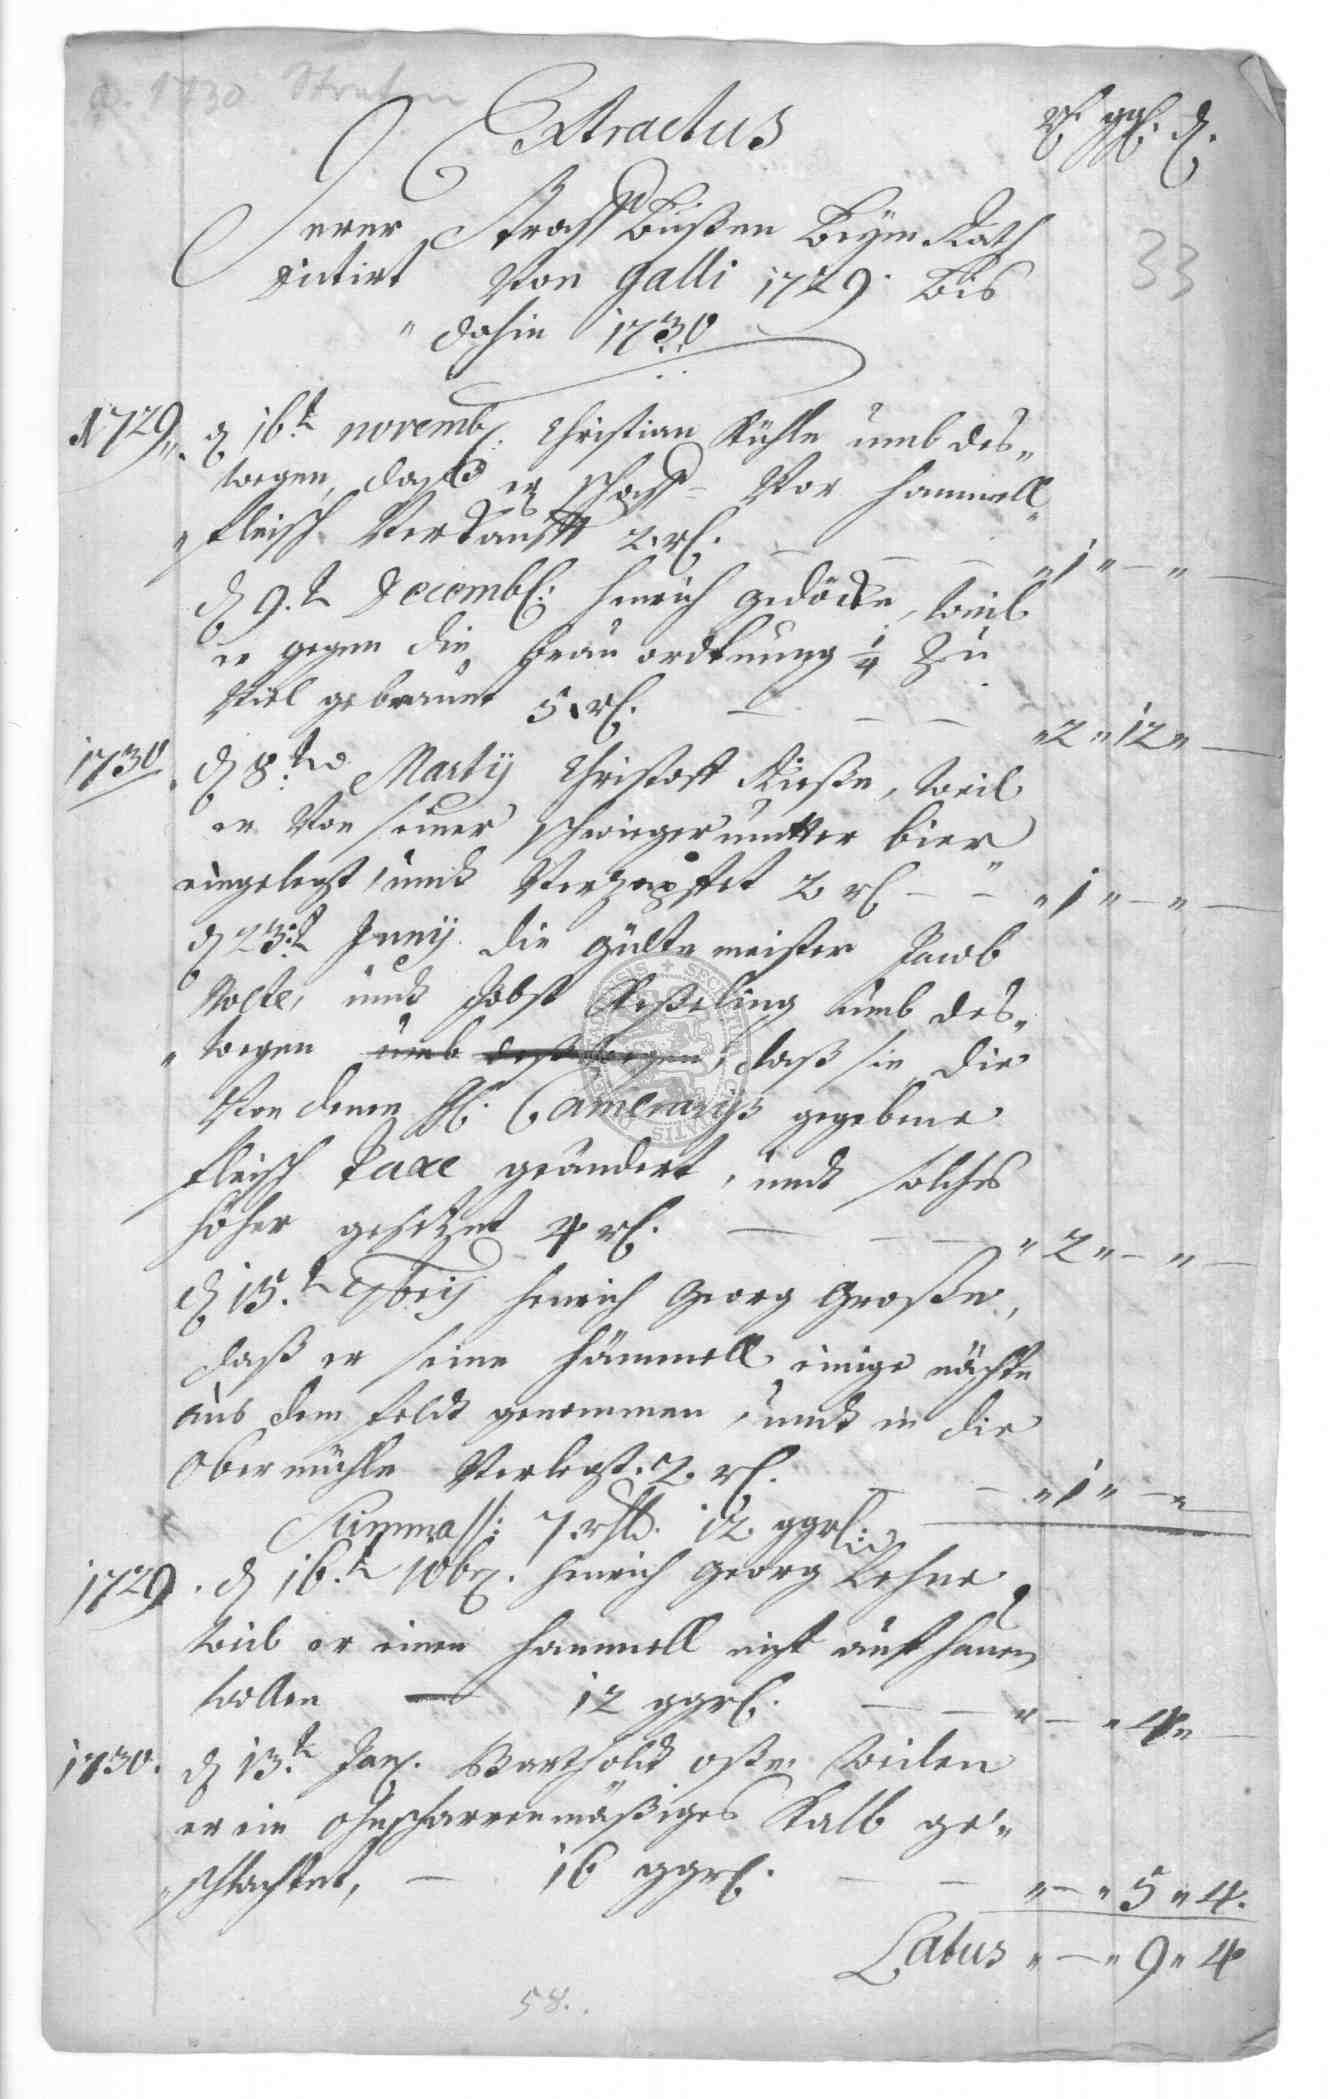 a. 1730. Strafen
Extractus
rl. ggl. d.
33
Derer Straff Bußen Beym Rath
dictirt Von Galli 1729. Bis
dahin 1730
1729. d 16.t novembr. Christian Kühle umb des„
wegen, daß er schaff- Vor Hammell
„fleisch Verkaufft 2. rl. — — — „1„—„—
d 9.t Decembr: Henrich Gedöcke, weil
er gegen die Brau ordnung 1/4 Zu
Viel gebrauet 5 rl. — — — „2„12„—
1730 d 8.ten Martij Christoff Kieße, weil
er Von seiner schwiegermutter bier
eingelegt, undt Verzapffet 2 rl — „ „1„—„—
d 23.t Junij die gülde meister Jacob
Nolte, undt Jobst Keßeling umb des„
„wegen umb deßwegen, daß sie die
Von denen H. Camerarijs gegebene
fleisch Taxe geändert, undt solches
höher gesetzet 4 rl. — — — „2„—„—
d 15.t 7brij Henrich Georg Große,
daß er seine Hämmell einige nächte
aus dem feldt genommen, undt in die
Obermühle Verlegt. 2. rl. — — „1„—„
Summa //: 7. rthl. 12 ggl:
1729. d 16.t 10br. Henrich Georg Lehne
weil er einen Hammell nicht aufhauen
wollen — 12 ggrl. — — „—„4„—
1730. d 13.t Jan. Barthold oste weilen
er ein ohnscharrenmäßiges Kalb ge„
„schlachtet, — 16 ggrl. — — „—„5„4.
Latus „—„9„4
58.